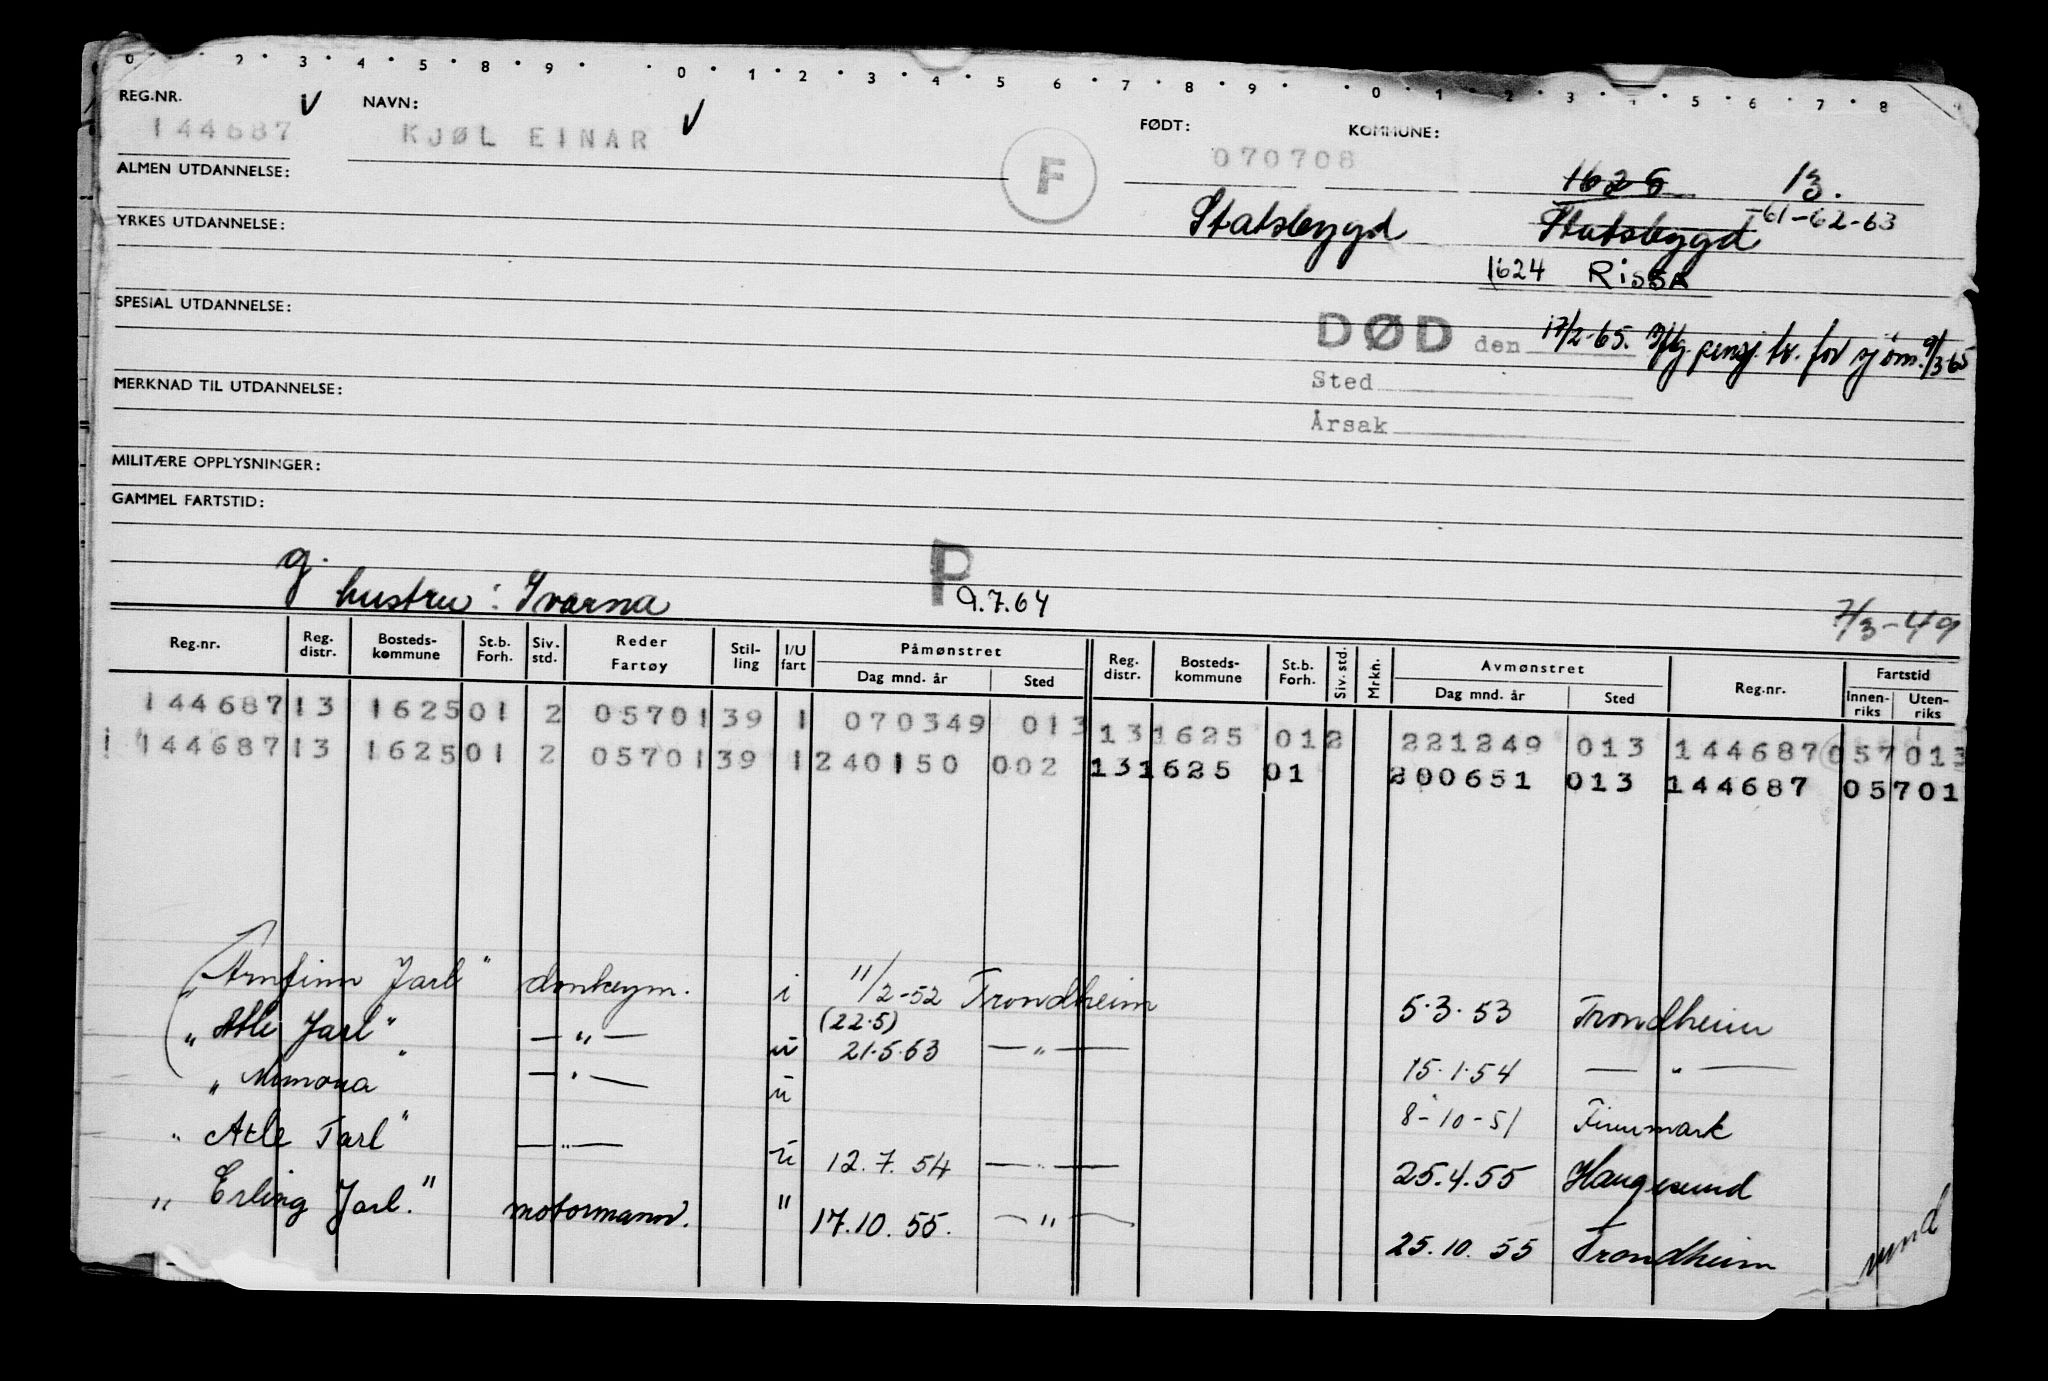 0 · 2 · 3 · 4 · 5 · 8 · 9 · · 0 · 1 · 2 · 3 · 4 · 5 · 6 · 7 · 8 · 9 · · 0 · 1 · 2 · 3 · 4 · 5 · 6 · 7 · 8
REG.NR. ✓ NAVN: ✓ FØDT: KOMMUNE:
144687 KJØL EINAR F 070708
1625 13.
ALMEN UTDANNELSE:
-61-62-63
YRKES UTDANNELSE: Statsbygd Statsbygd
1624 Rissa
SPESIAL UTDANNELSE:
DØD den 17/2-65. pensj. tr. for sjøm. 9/3 65
MERKNAD TIL UTDANNELSE: Sted
Årsak
MILITÆRE OPPLYSNINGER:
GAMMEL FARTSTID:
g. P
hustru: Ivarna 9.7.64 7/3-49
Reg.nr. Reg. distr. Bosteds-kommune St.b. Forh. Siv. std. Reder Fartøy Stil-ling I/U fart Påmønstret Dag mnd. år Sted Reg. distr. Bosteds-kommune St.b. Forh. Siv. std. Mrkn. Avmønstret Dag mnd. år Sted Reg.nr. Fartstid Innen-riks Uten-riks
144687 13 1625 01 2 05701 39 1 070349 013 13 1625 01 2 221249 013 144687 057013
1 144687 13 1625 01 2 05701 39 1 240150 002 13 1625 01 200651 013 144687 05701
"Arnfinn Jarl" donkeym. i 11/2-52 Trondheim 5.3.53 Trondheim
(22.5)
"Atle Jarl" — " — u 21.5.53 — " — 15.1.54 — " —
"Mimona" — " — u 8-10-51 Finnmark
"Atle Jarl" — " — u 12.7.54 — " — 25.4.55 Haugesund
"Erling Jarl." motormann. " 17.10.55. — " — 25.10.55 Trondheim